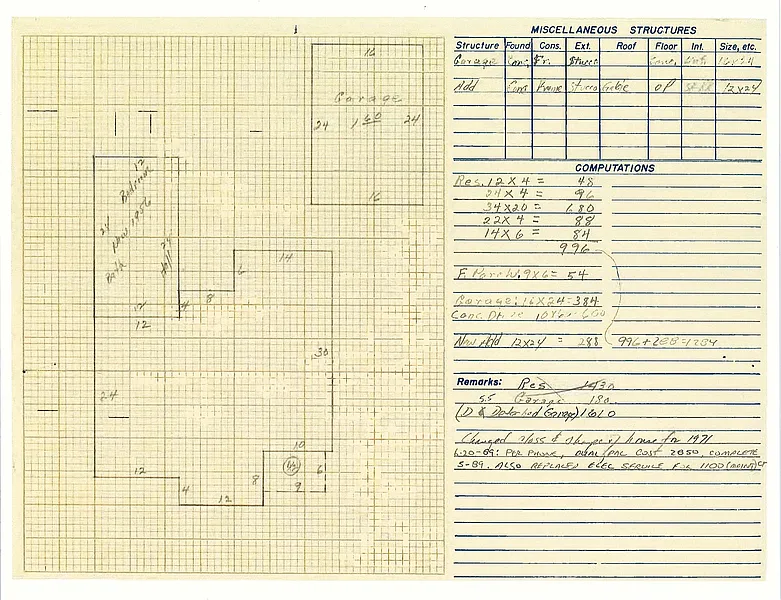 16
Garage
24
1 60
24
16
12
Bedroom
24
New 1956
24
Bath
Hall
12
4
12
8
6
14
30
24
12
4
12
8
10
6
9
MISCELLANEOUS STRUCTURES
Structure Found Cons. Ext. Roof Floor Int. Size, etc.
Garage Conc. Fr. Stucco Conc. 16x24
Add Conc Frame Stucco Gable OP 12x24
COMPUTATIONS
Res. 12 X 4 = 48
24 X 4 = 96
34X20 = 680
22X 4 = 88
14X 6 = 84
996
F. Porch. 9X6 = 54
Garage: 16X24=384
Conc. 10X6
New Add 12x24 = 288 996+288=1284
Remarks: Res 1430
55 Garage 180
(D & Detached Garage) 1610
Changed class & shape of house for 1971
6-20-89: PER PHONE, DUAL PAC COST 2850, COMPLETE
5-89. ALSO REPLACED ELEC SERVICE FOR 1100 (MAINT)